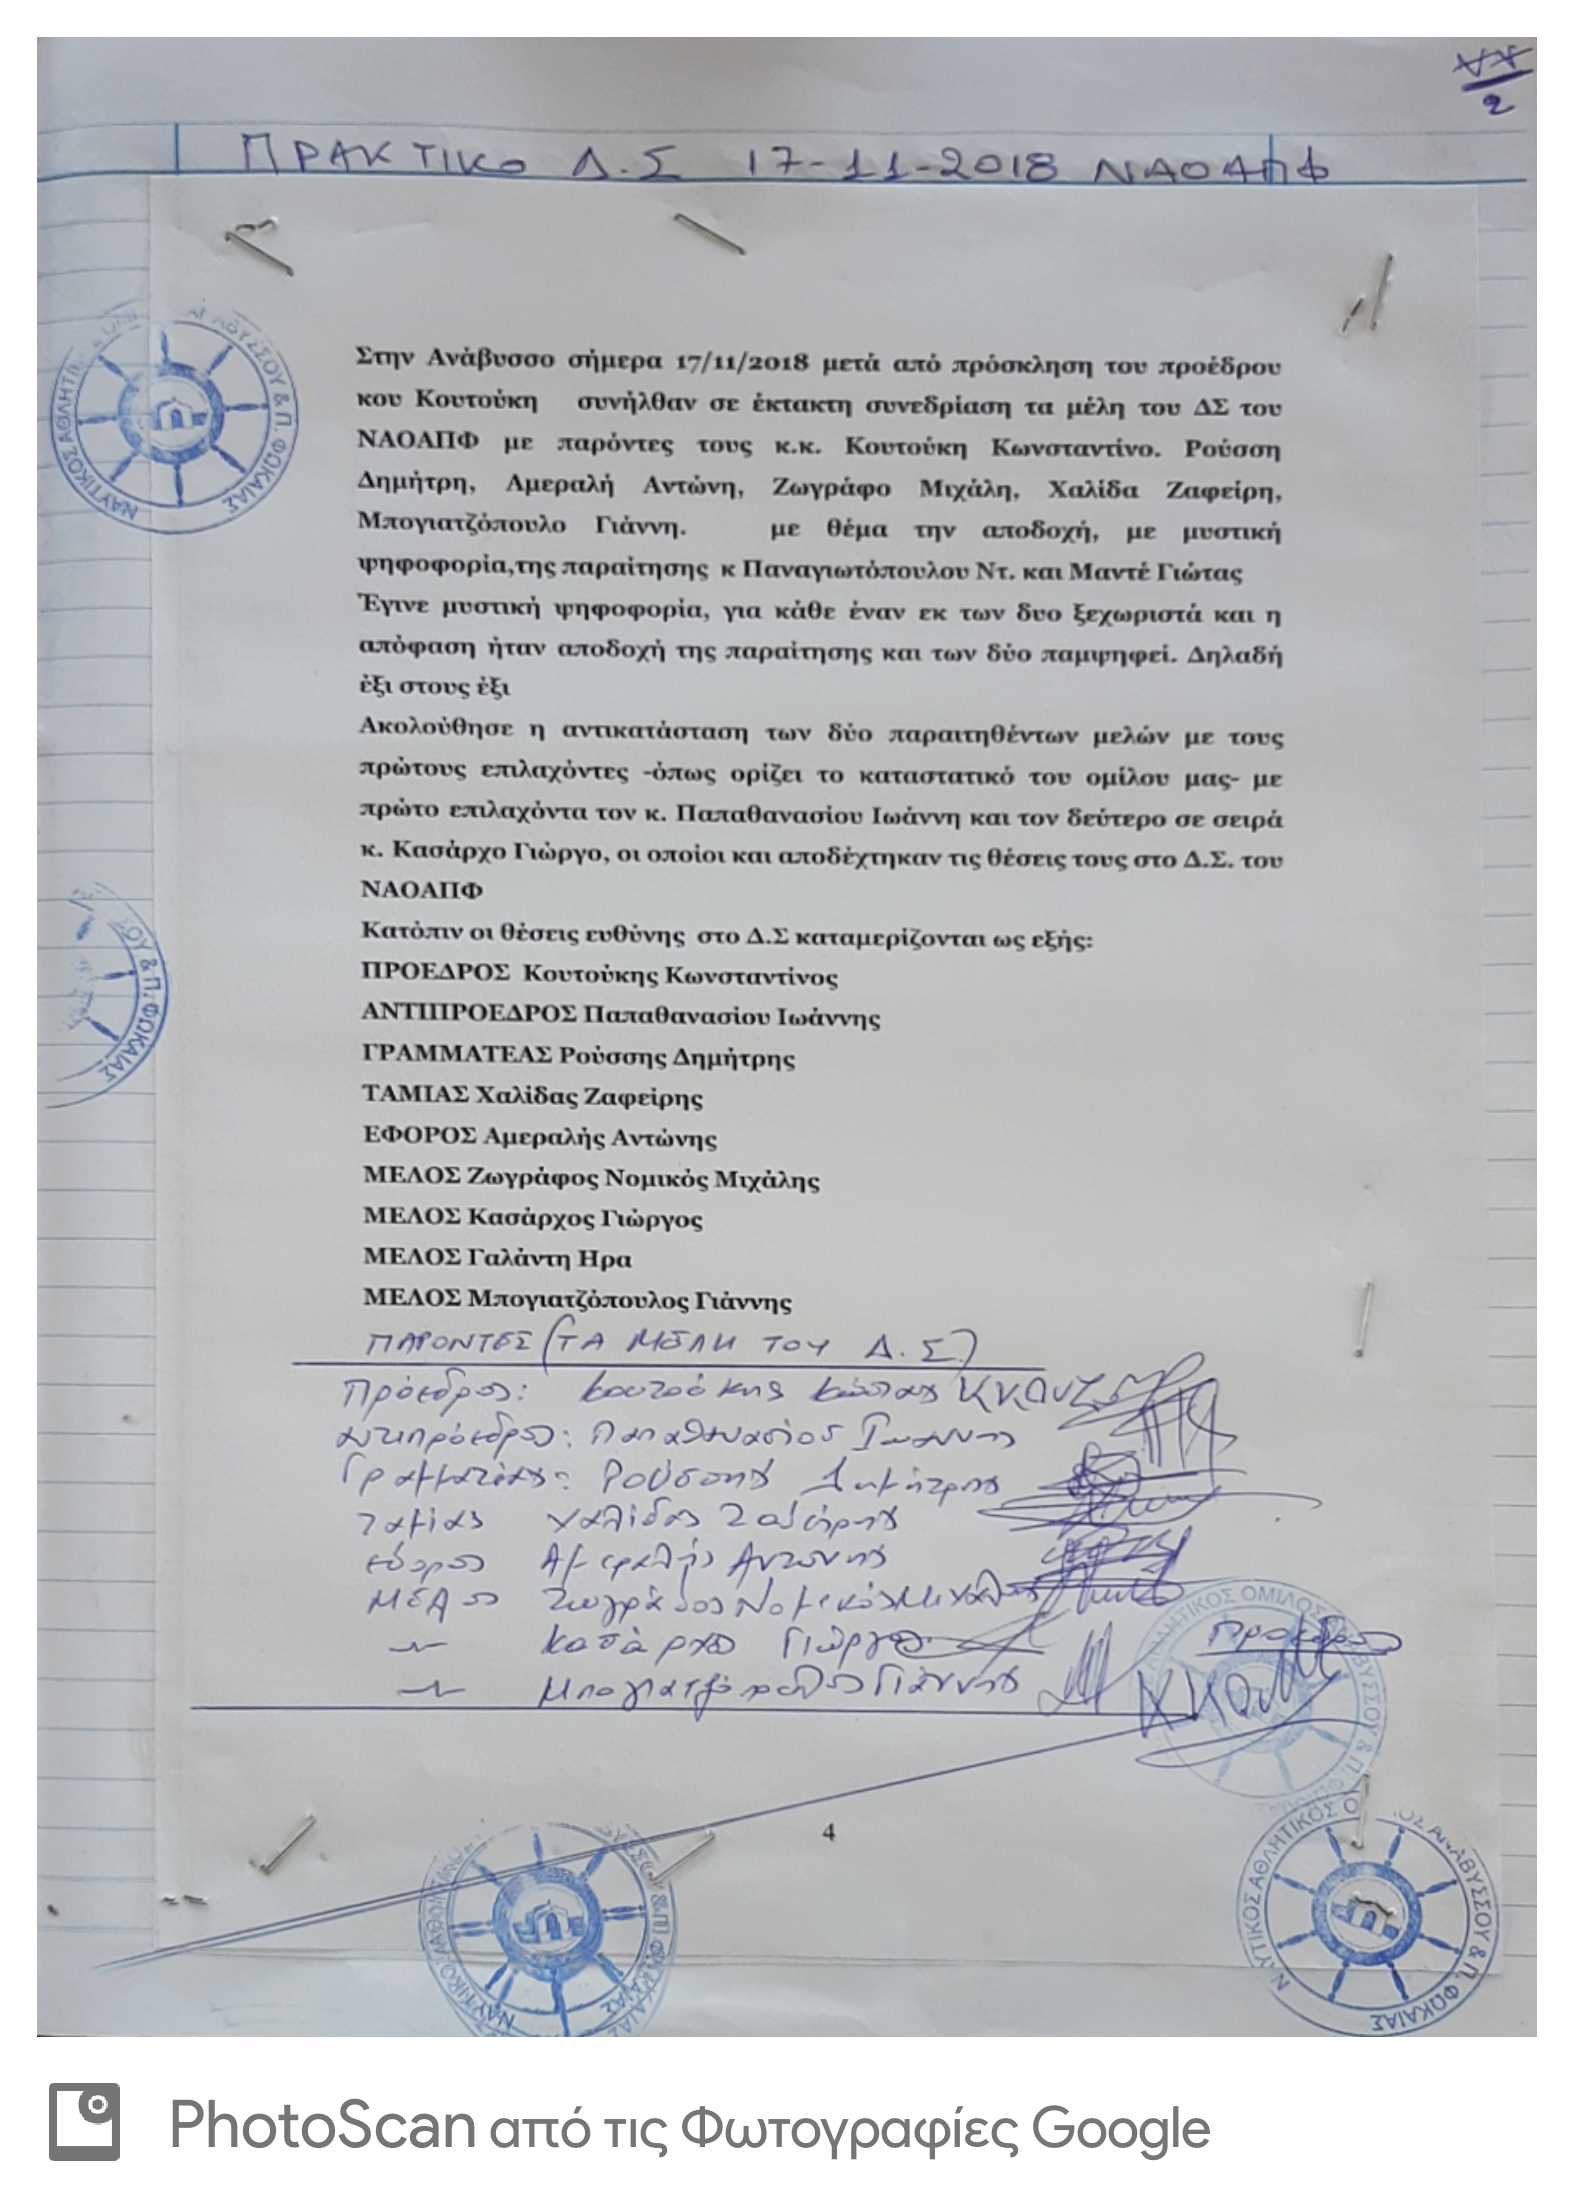 ΠΡΑΚΤΙΚΟ Δ.Σ 17-11-2018 ΝΑΟΑΠΦ
Στην Ανάβυσσο σήμερα 17/11/2018 μετά από πρόσκληση του προέδρου
κου Κουτούκη συνήλθαν σε έκτακτη συνεδρίαση τα μέλη του ΔΣ του
ΝΑΟΑΠΦ με παρόντες τους κ.κ. Κουτούκη Κωνσταντίνο. Ρούσση
Δημήτρη, Αμεραλή Αντώνη, Ζωγράφο Μιχάλη, Χαλίδα Ζαφείρη,
Μπογιατζόπουλο Γιάννη. με θέμα την αποδοχή, με μυστική
ψηφοφορία,της παραίτησης κ Παναγιωτόπουλου Ντ. και Μαντέ Γιώτας
Έγινε μυστική ψηφοφορία, για κάθε έναν εκ των δυο ξεχωριστά και η
απόφαση ήταν αποδοχή της παραίτησης και των δύο παμψηφεί. Δηλαδή
έξι στους έξι
Ακολούθησε η αντικατάσταση των δύο παραιτηθέντων μελών με τους
πρώτους επιλαχόντες -όπως ορίζει το καταστατικό του ομίλου μας- με
πρώτο επιλαχόντα τον κ. Παπαθανασίου Ιωάννη και τον δεύτερο σε σειρά
κ. Κασάρχο Γιώργο, οι οποίοι και αποδέχτηκαν τις θέσεις τους στο Δ.Σ. του
ΝΑΟΑΠΦ
Κατόπιν οι θέσεις ευθύνης στο Δ.Σ καταμερίζονται ως εξής:
ΠΡΟΕΔΡΟΣ Κουτούκης Κωνσταντίνος
ΑΝΤΙΠΡΟΕΔΡΟΣ Παπαθανασίου Ιωάννης
ΓΡΑΜΜΑΤΕΑΣ Ρούσσης Δημήτρης
ΤΑΜΙΑΣ Χαλίδας Ζαφείρης
ΕΦΟΡΟΣ Αμεραλής Αντώνης
ΜΕΛΟΣ Ζωγράφος Νομικός Μιχάλης
ΜΕΛΟΣ Κασάρχος Γιώργος
ΜΕΛΟΣ Γαλάντη Ηρα
ΜΕΛΟΣ Μπογιατζόπουλος Γιάννης
ΠΑΡΟΝΤΕΣ (ΤΑ ΜΕΛΗ ΤΟΥ Δ.Σ.)
Πρόεδρος: Κουτούκης Κώστας
Αντιπρόεδρος: Παπαθανασίου Ιωάννης
Γραμματέας: Ρούσσης Δημήτρης
Ταμίας Χαλίδας Ζαφείρης
Εφορος Αμεραλής Αντώνης
Μέλος Ζωγράφος Νομικός Μιχάλης
Κασάρχος Γιώργος
Μπογιατζόπουλος Γιάννης
Πρόεδρος
4
ΝΑΥΤΙΚΟΣ ΑΘΛΗΤΙΚΟΣ ΟΜΙΛΟΣ ΑΝΑΒΥΣΣΟΥ & Π. ΦΩΚΑΙΑΣ
PhotoScan από τις Φωτογραφίες Google